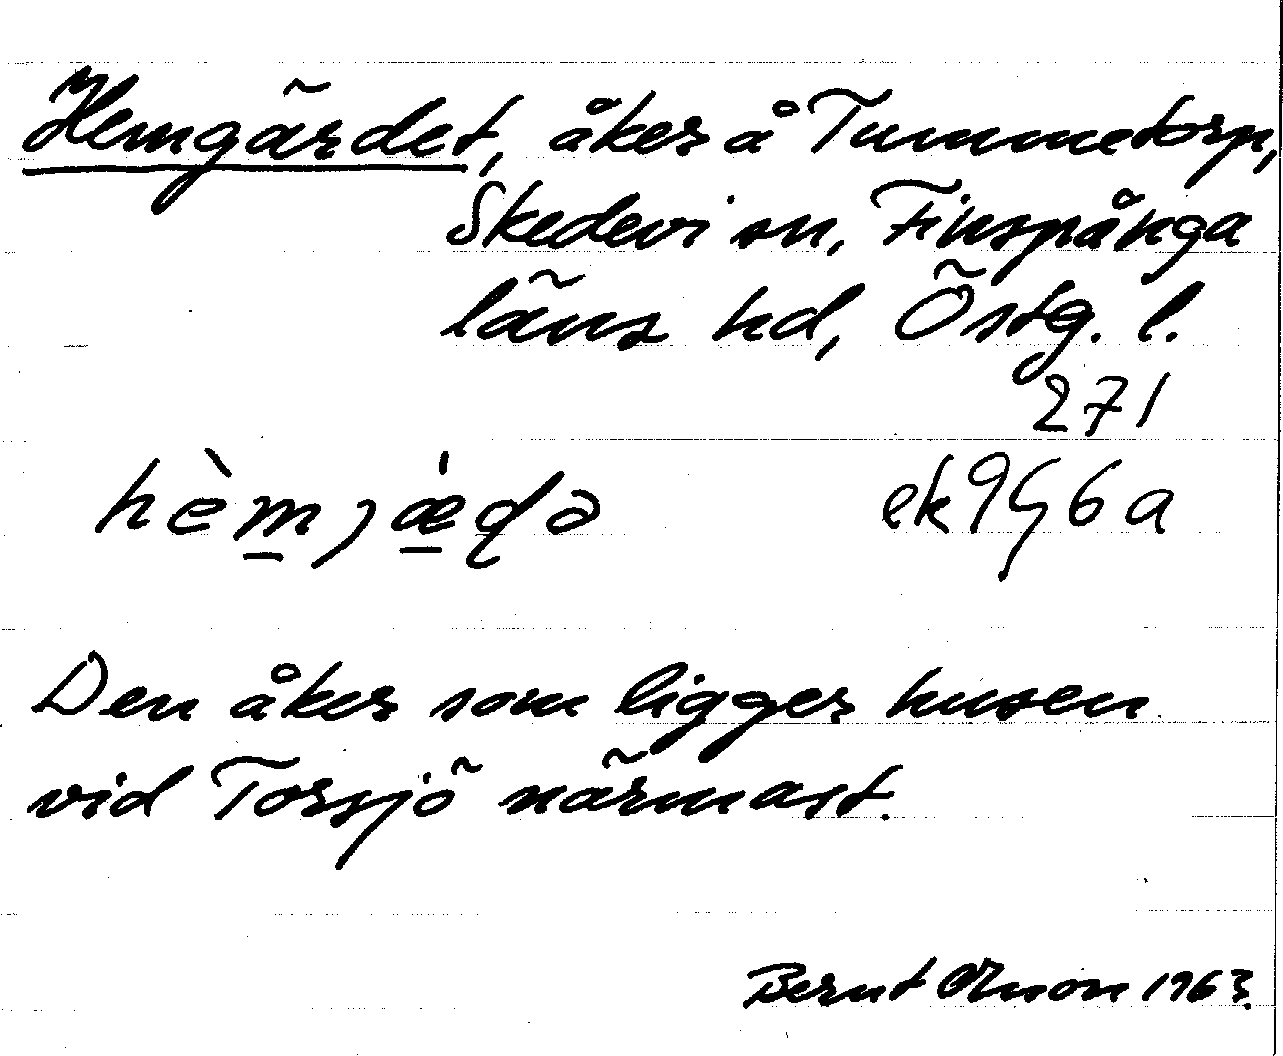 Hemgärdet, åker å Tummetorp,
Skedevi sn, Finspånga
läns hd, Östg. l.
271
hèmjæ̍ɖə ek 9Ç6a
Den åker som ligger husen
vid Torsjö närmast.
Bernt Olsson 1963.